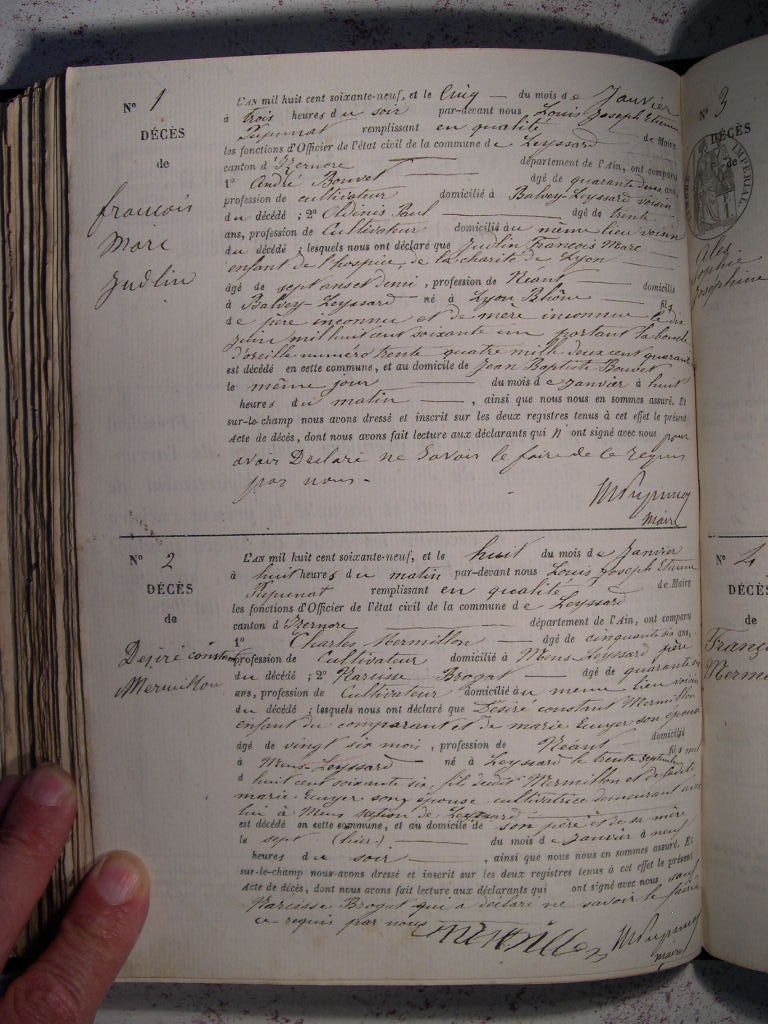 N° 1
DÉCÈS
de
francois
Marc
Judlin
L'AN mil huit cent soixante-neuf, et le Cinq du mois de Janvier
à trois heures du soir par-devant nous Louis Joseph Etienne
Pupunat remplissant en qualité de Maire
les fonctions d'Officier de l'état civil de la commune de Leyssard
canton d'Izernore département de l'Ain, ont comparu
1° André Bouvet âgé de quarante deux ans,
profession de cultivateur domicilié à Balvay-Leyssard voisin
du décédé ; 2° Oldinis Paul âgé de trente
ans, profession de Cultivateur domicilié au même lieu voisin
du décédé ; lesquels nous ont déclaré que Judlin francois Marc
enfant de l'hospice, de la charité de Lyon
âgé de sept ans et demi, profession de Néant domicilié
à Balvay-Leyssard né à Lyon Rhône fils
de père inconnu et de mère inconnue le dix
juin mil huit cent soixante un portant la boucle
d'oreille numéro trente quatre mille deux cent quarante
est décédé en cette commune, et au domicile de Jean Baptiste Bouvet
le même jour du mois de janvier à huit
heures du matin , ainsi que nous nous en sommes assuré. Et
sur-le-champ nous avons dressé et inscrit sur les deux registres tenus à cet effet le présent
Acte de décès, dont nous avons fait lecture aux déclarants qui n'ont signé avec nous pour
avoir Déclaré ne Savoir le faire de ce requis
par nous.
Maire
N° 2
DÉCÈS
de
Désiré constant
Mermillon
L'AN mil huit cent soixante-neuf, et le huit du mois de Janvier
à huit heures du matin par-devant nous Louis Joseph Etienne
Pupunat remplissant en qualité de Maire
les fonctions d'Officier de l'état civil de la commune de Leyssard
canton d'Izernore département de l'Ain, ont comparu
1° Charles Mermillon âgé de cinquante six ans,
profession de Cultivateur domicilié à Mens-Leyssard père
du décédé ; 2° Narcisse Brogat âgé de quarante six
ans, profession de Cultivateur domicilié au meme lieu voisin
du décédé ; lesquels nous ont déclaré que Désiré constant Mermillon
enfant du comparant et de marie Euryer son épouse
âgé de vingt six mois, profession de Néant domicilié
à Mens-Leyssard né à Leyssard le trente septembre mil
huit cent soixante six, fils dudit Mermillon et de ladite
marie Euryer son épouse cultivatrice demeurant avec
lui à Mens section de Leyssard
est décédé en cette commune, et au domicile de son père et de sa mère
le sept (hier) du mois de janvier à neuf
heures du soir , ainsi que nous nous en sommes assuré. Et
sur-le-champ nous avons dressé et inscrit sur les deux registres tenus à cet effet le présent
Acte de décès, dont nous avons fait lecture aux déclarants qui ont signé avec nous sauf
Narcisse Brogat qui a déclaré ne savoir le faire
ce requis par nous
Mermillon
maire
N° 3
DÉCÈS
de
IMPÉRIAL
Sophie
Joséphine
N° 4
DÉCÈS
de
Franç
Merme